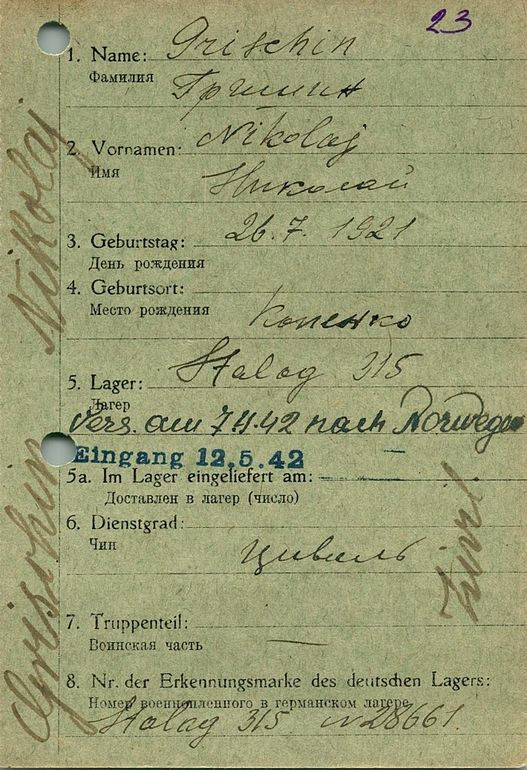 23
1. Name: Grischin
Фамилия Гришин
2. Vornamen: Nikolaj
Имя Николай
3. Geburtstag: 26. 7. 1921
День рождения
4. Geburtsort:
Место рождения Копенко
5. Lager: Stalag 315
Лагер
Vers. am 7.11.42 nach Norwegen
Eingang 12.5.42
5a. Im Lager eingeliefert am: —
Доставлен в лагер (число)
6. Dienstgrad:
Чин цивиль
7. Truppenteil:
Воинская часть —
8. Nr. der Erkennungsmarke des deutschen Lagers:
Номер военнопленного в германском лагере
Stalag 315 N 28661.
Grischin Nikolaj
Zivil